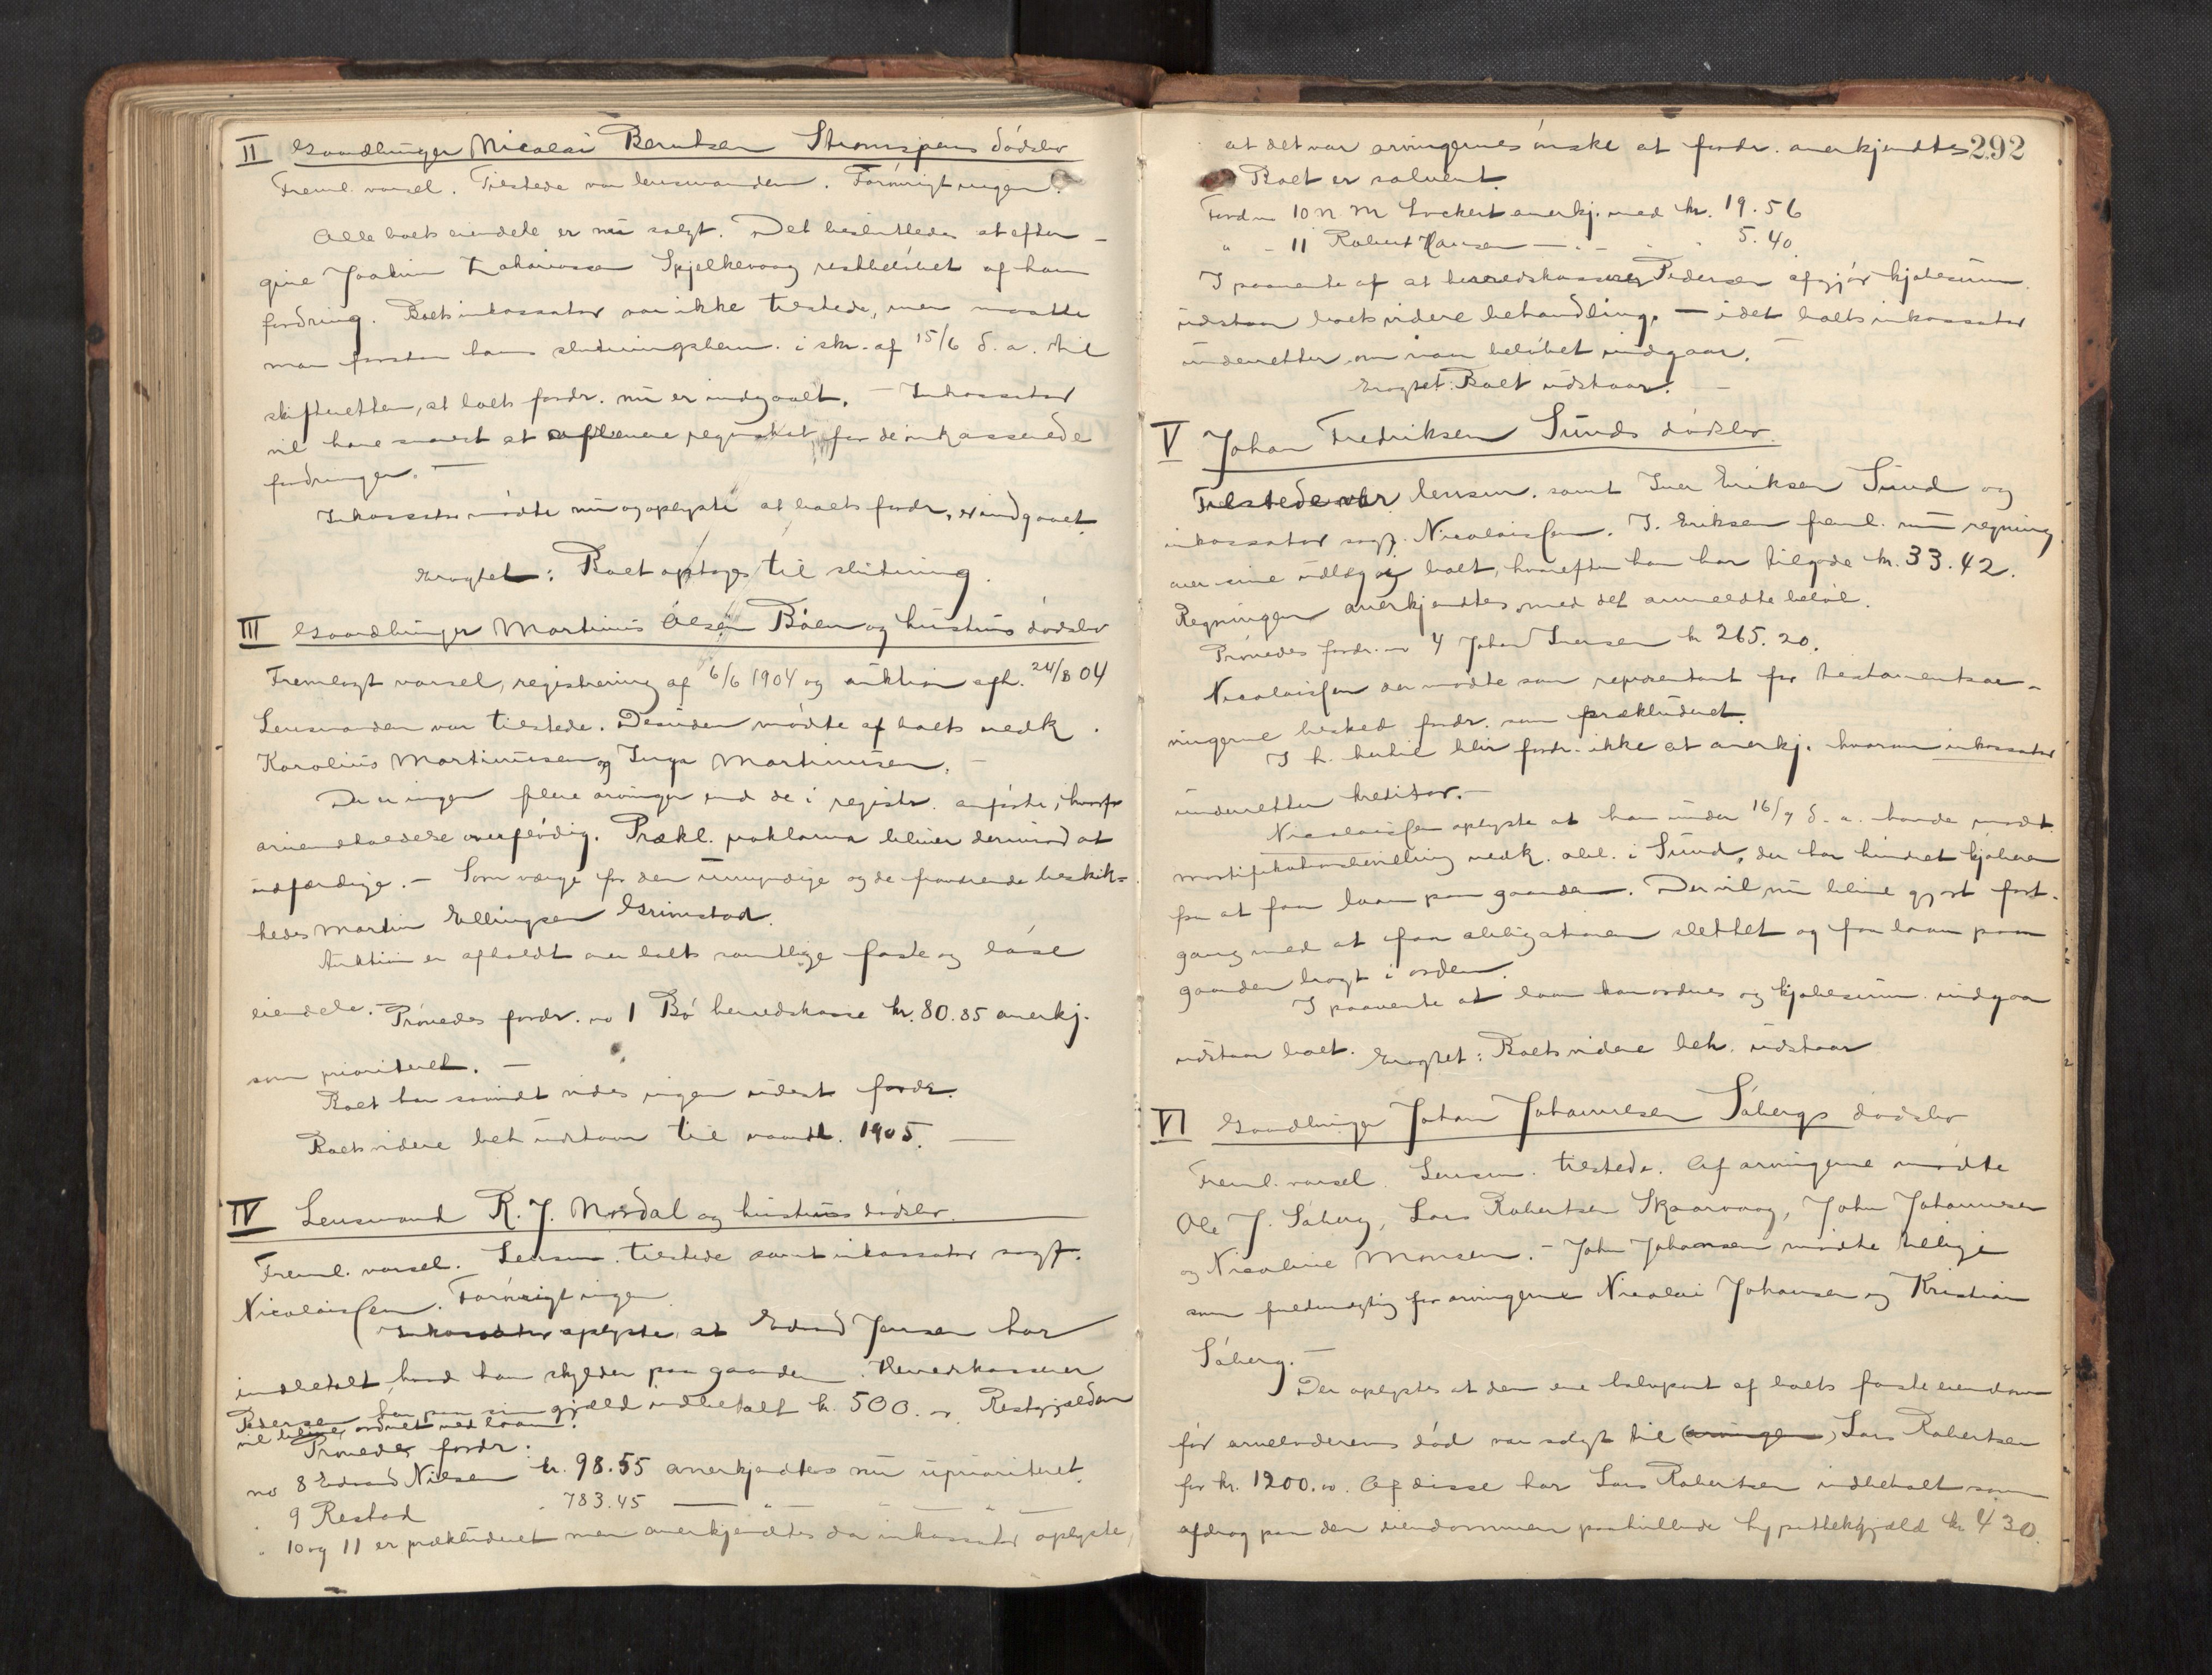 II Gaardbruger Nicolai Berntsen Strømspens dødsbo
Freml. varsel. Tilstede var lensmanden. Forøvrigt ingen.
Alle boets eiendele er nu solgt. Det besluttedes at efter-
give Joakim Zakariassen Spjelkevaag restbeløbet af hans
fordring. Boets inkassator var ikke tilstede, men maatte
man forstaa hans slutningsbem. i skr. af 15/6 d. a. til
skifteretten, at boets fordr. nu er indgaaet. – Inkassator
vil have snarest at aflevere regnskab for de inkasserede
fordringer. –
Inkassator mødte nu og oplyste at boets fordr. er indgaaet.
Eragtet: Boet optages til slutning.
III Gaardbruger Martinus Olsen Bøen og hustrus dødsbo
Fremlagt varsel, registrering af 6/6 1904 og auktion afh. 24/8 04
Lensmanden var tilstede. Desuden mødte af boets vedk.
Karolius Martinusen og Inga Martinusen. –
Der er ingen flere arvinger end de i registr. anførte, hvorfor
arveindkaldelse overflødig. Prækl. proklama bliver derimod at
udfærdige. – Som værge for den umyndige og de fraværende beskik-
kedes Martin Ellingsen Grimstad.
Auktion er afholdt over boets samtlige faste og løse
eiendele. – Prøvedes fordr. no 1 Bø herredskasse kr. 80.85 anerkj.
som prioriteret. –
Boet har saavidt vides ingen udest. fordr.
Boets videre beh. udstaar til vaarth. 1905. –
IV Lensmand R. J. Nordal og hustrus dødsbo.
Freml. varsel. Lensm. tilstede samt inkassator sagf.
Nicolaissen. Forøvrigt ingen
Inkassator oplyste at Edvard Jensen har
indbetalt, hvad han skylder paa gaarden. Herredskasserer
Pedersen har paa sin gjæld indbetalt kr. 500. Restgjælden
vil blive ordnet ved laan.
Prøvedes fordr.
no 8 Edvard Nilsen kr. 98.55 anerkjendtes nu uprioriteret.
" 9 Restad " 783.45 — " — " — " —
" 10 og 11 er prækluderet men anerkjendtes da inkassator oplyste,
292
at det var arvingernes ønske at fordr. anerkjendtes
Boet er solvent.
Fordr. no 10 N. M. Lockert anerkj. med kr. 19.56
" - 11 Robert Hansen — " — " 5.40.
I paavente af at herredskasserer Pedersen afgjør kjøbesum
udstaar boets videre behandling. – idet boets inkassator
underetter om naar beløbet indgaar. –
Eragtet: Boet udstaar. –
V Johan Fredriksen Sunds dødsbo.
Tilstede var lensm. samt Iver Eriksen Sund og
inkassator sagf. Nicolaissen. I. Eriksen freml. nu regning
over sine udlæg og boet, hvorefter han har tilgode kr. 33.42.
Regningen anerkjendtes med det anmeldte beløb.
Prøvedes fordr. no 4 Johan Iversen kr 265.20.
Nicolaissen der mødte som representant for testamentsar-
vingerne besked fordr. som prækluderet.
I h. hertil blir fordr. ikke at anerkj. hvorom inkassator
underetter kreditor. –
Nicolaissen oplyste at han under 16/9 d. a. havde modt.
mortifikationsbevilling vedk. obl. i Sund, der har hindret kjøberen
fra at faa laan paa gaarden. Der vil nu blive gjort fort-
gang med at faa obligationen slettet og faa laan paa
gaarden bragt i orden.
I paavente at laan kan ordnes og kjøbesum indgaa
udstaar boet. Eragtet: Boets videre beh. udstaar
VI Gaardbruger Johan Johannesen Søbergs dødsbo
Freml. varsel. Lensm. tilstede. Af arvingerne mødte
Ole J. Søberg, Lars Robertsen Skaarvaag, John Johannesen
og Nicoline Monsen. – John Johansen mødte tillige
som fuldmægtig for arvingerne Nicolai Johansen og Kristian
Søberg. –
Der oplystes at den ene halvpart af boets faste eiendom
før arveladerens død var solgt til (arvingen) Lars Robertsen
for kr. 1200.00. Af disse har Lars Robertsen indbetalt som
afdrag paa den eiendommen paahvilende hypothekgjæld kr 430.